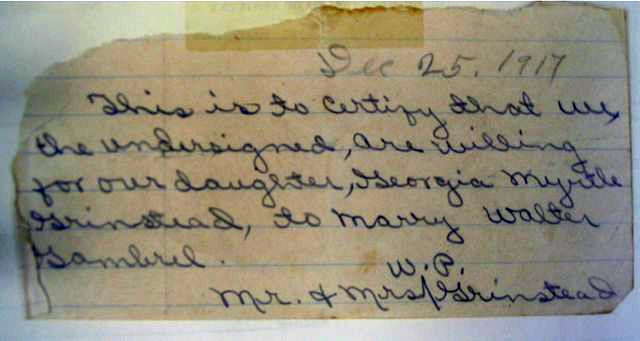 Dec 25, 1917
This is to certify that we,
the undersigned, are willing
for our daughter, Georgia Myrtle
Grinstead, to marry Walter
Gambrel.
W. P.
Mr. & Mrs. Grinstead